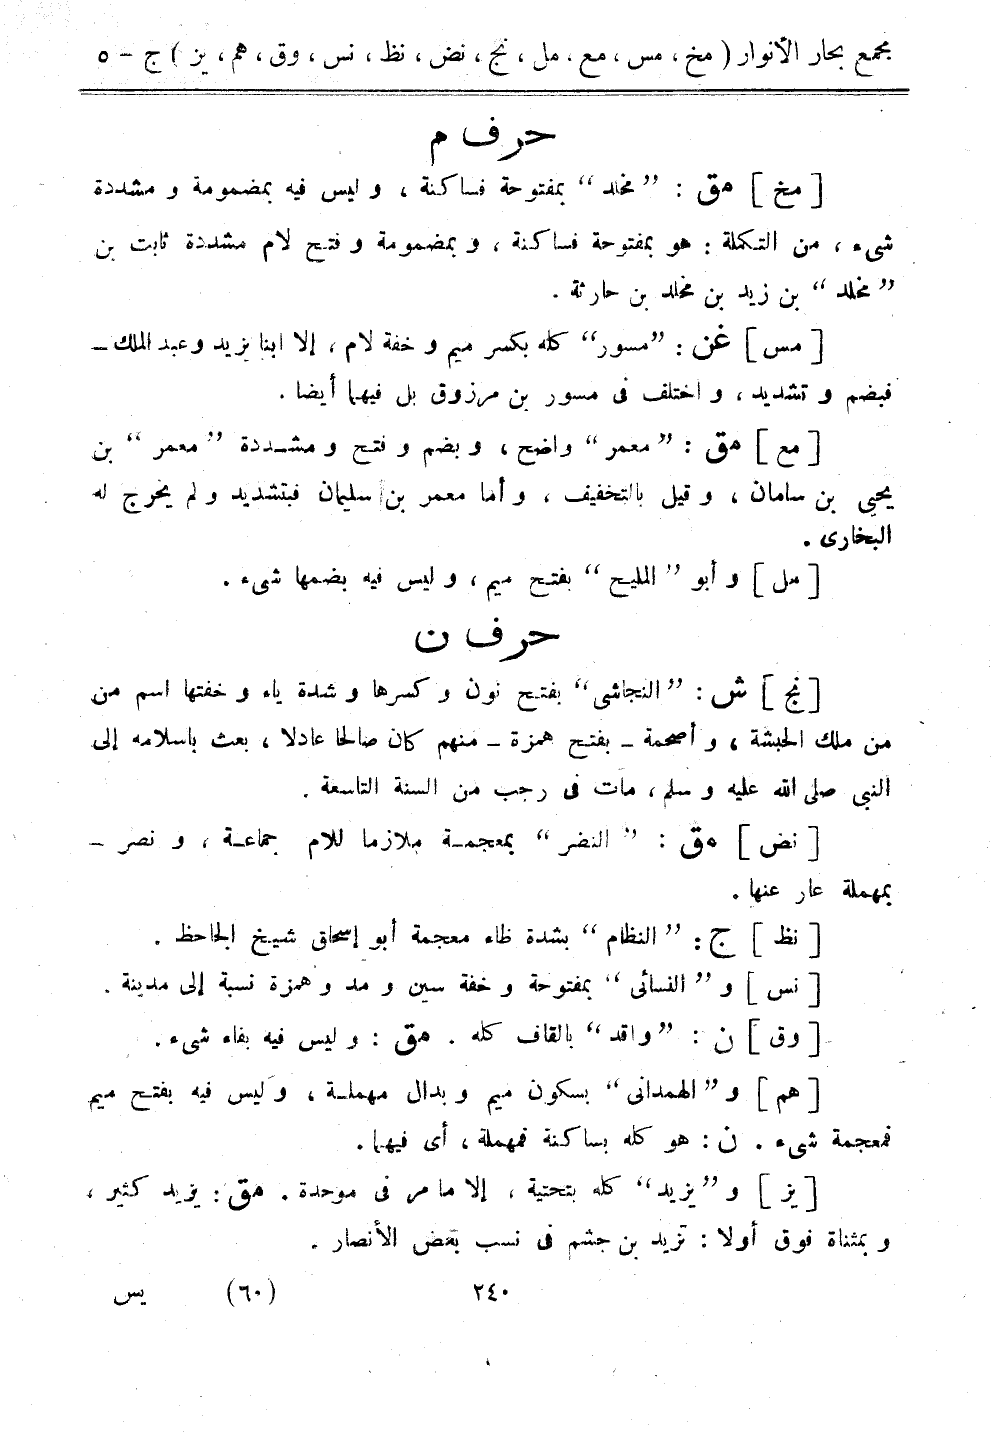 مجمع بحار الأنوار ( مخ ، مس ، مع ، مل ، نج ، نض ، نظ ، نس ، وق ، هم ، يز ) ج - ٥
حرف م
[ مخ ] مق : ”مخلد“ بمفتوحة فساكنة ، و ليس فيه بمضمومة و مشددة
شىء ، من التكملة : هو بمفتوحة فساكنة ، و بمضمومة و فتح لام مشددة ثابت بن
”مخلد“ بن زيد بن مخلد بن حارثة .
[ مس ] غن : ”مسور“ كله بكسر ميم و خفة لام ، إلا ابنا يزيد و عبد الملك ــ
فبضم و تشديد ، و اختلف فى مسور بن مرزوق بل فيهما أيضا .
[ مع ] مق : ”معمر“ واضح ، و بضم و فتح و مشددة ”معمر“ بن
يحيى بن سامان ، و قيل بالتخفيف ، و أما معمر بن سليمان فبتشديد و لم يخرج له
البخارى .
[ مل ] و أبو ”المليح“ بفتح ميم ، و ليس فيه بضمها شىء .
حرف ن
[ نج ] ش : ”النجاشى“ بفتح نون و كسرها و شدة ياء و خفتها اسم من
من ملك الحبشة ، و أصحمة ــ بفتح همزة ــ منهم كان صالحا عادلا ، بعث باسلامه إلى
النبى صلى الله عليه و سلم ، مات فى رجب من السنة التاسعة .
[ نض ] مق : ”النضر“ بمعجمة ملازما للام جماعة ، و نصر ــ
بمهملة عار عنها .
[ نظ ] ج : ”النظام“ بشدة ظاء معجمة أبو إسحاق شيخ الجاحظ .
[ نس ] و ”النسائى“ بمفتوحة و خفة سين و مد و همزة نسبة إلى مدينة .
[ وق ] ن : ”واقد“ بالقاف كله . مق : و ليس فيه بفاء شىء .
[ هم ] و ”الهمدانى“ بسكون ميم و بدال مهملة ، و ليس فيه بفتح ميم
فمعجمة شىء . ن : هو كله بساكنة فمهملة ، أى فيهما .
[ يز ] و ”يزيد“ كله بتحتية ، إلا ما مر فى موحدة . مق : يزيد كثير ،
و بمثناة فوق أولا : تزيد بن جشم فى نسب بعض الأنصار .
٢٤٠ (٦٠) يس